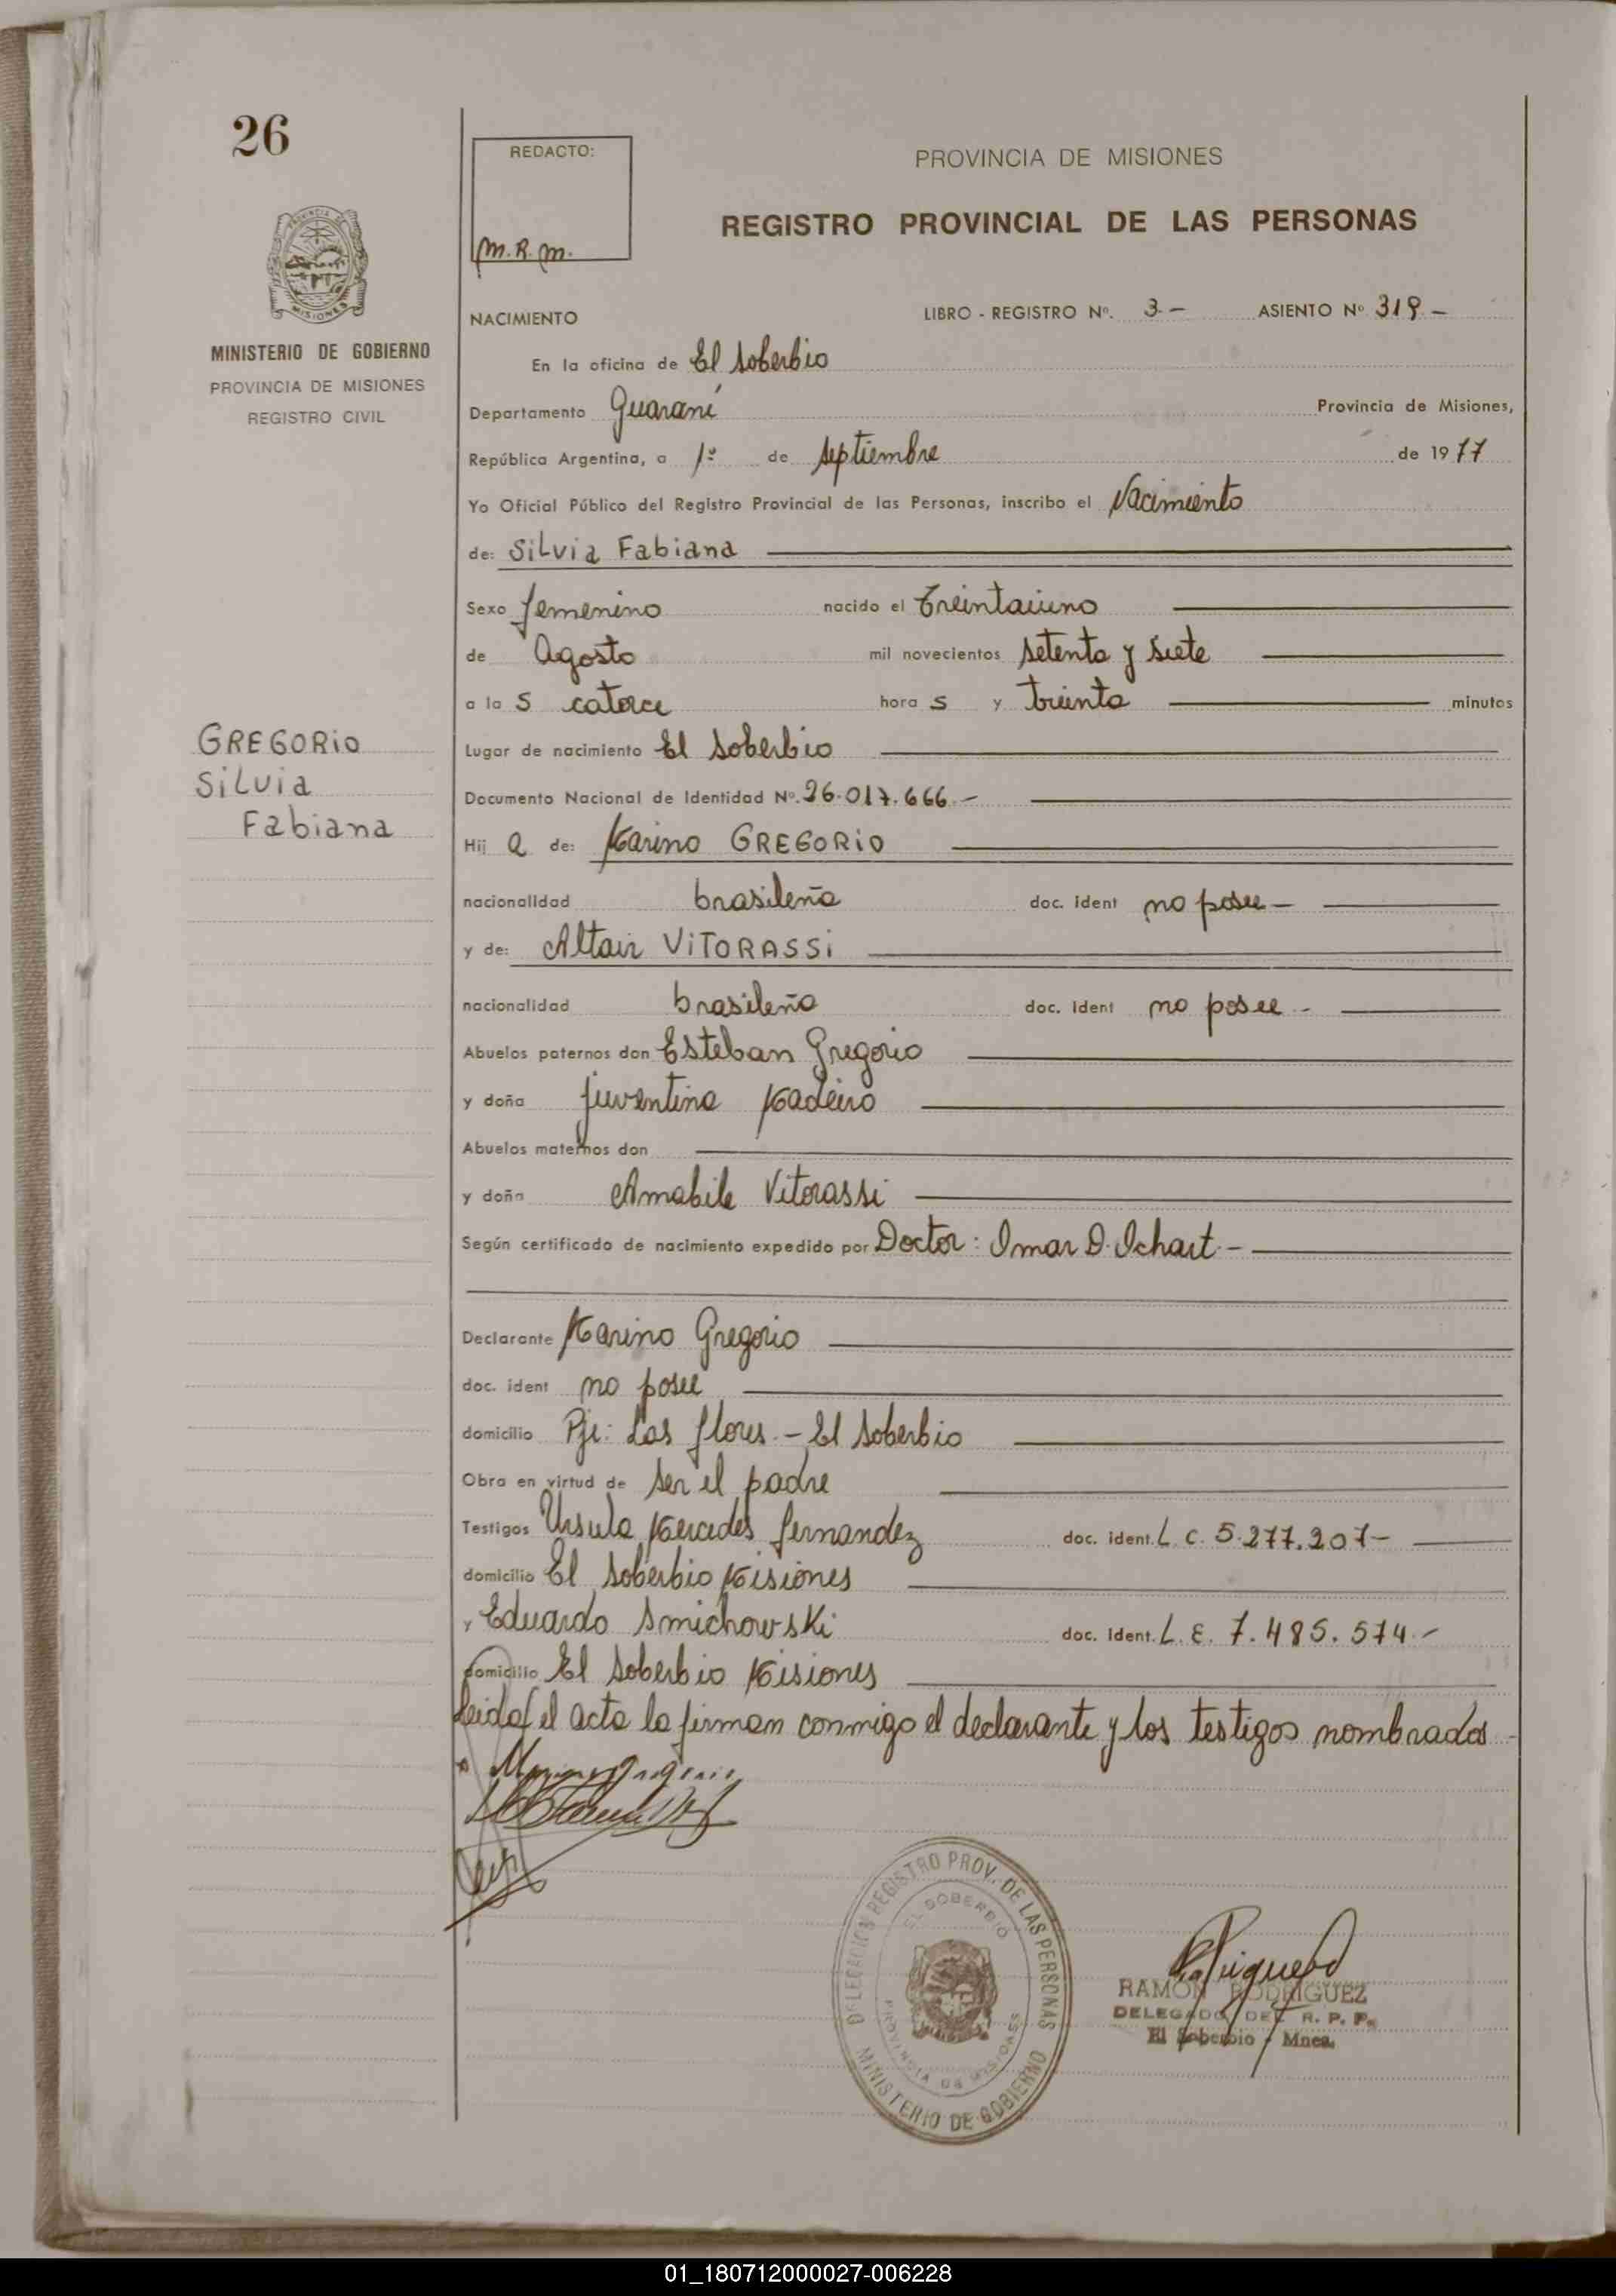 26
REDACTO:
M.R.M.
PROVINCIA DE MISIONES
REGISTRO PROVINCIAL DE LAS PERSONAS
MINISTERIO DE GOBIERNO
PROVINCIA DE MISIONES
REGISTRO CIVIL
NACIMIENTO LIBRO - REGISTRO Nº. 3- ASIENTO Nº 319-
En la oficina de El Soberbio
Departamento Guaraní Provincia de Misiones,
República Argentina, a 1º de Septiembre de 1977
Yo Oficial Público del Registro Provincial de las Personas, inscribo el Nacimiento
de: Silvia Fabiana
Sexo femenino nacido el treintaiuno
de Agosto mil novecientos setenta y siete
a las catorce horas y treinta minutos
GREGORIO
Silvia
Fabiana
Lugar de nacimiento El Soberbio
Documento Nacional de Identidad Nº. 26.017.666.-
Hija de: Marino GREGORIO
nacionalidad brasileña doc. ident no posee-
y de: Altair VITORASSI
nacionalidad brasileña doc. ident no posee-
Abuelos paternos don Esteban Gregorio
y doña Juventina Madeiro
Abuelos maternos don
y doña Amabile Vitorassi
Según certificado de nacimiento expedido por Doctor: Omar D. Ichart-
Declarante Marino Gregorio
doc. ident no posee
domicilio Pje: Las flores - El Soberbio
Obra en virtud de ser el padre
Testigos Ursula Mercedes Fernandez doc. ident. L.C. 5.277.207-
domicilio El Soberbio Misiones
y Eduardo Smichowski doc. ident. L.E. 7.485.574.-
domicilio El Soberbio Misiones
Leida el acta la firman conmigo el declarante y los testigos nombrados
Marino Gregorio
DELEGACION REGISTRO PROV. DE LAS PERSONAS
EL SOBERBIO
PROVINCIA DE MISIONES
MINISTERIO DE GOBIERNO
RAMON RODRIGUEZ
DELEGADO DEL R. P. P.
El Soberbio - Mnes.
01_180712000027-006228